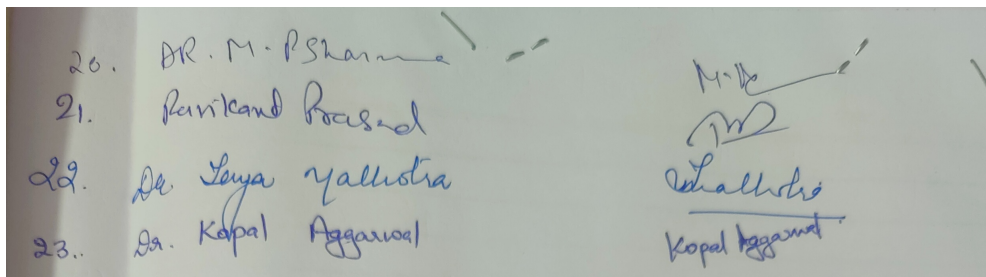 20. DR. M. P Sharma
21. Ravikand Prasad
22. Dr. Malhotra Malhotra
23. Dr. Kopal Aggarwal Kopal Aggarwal